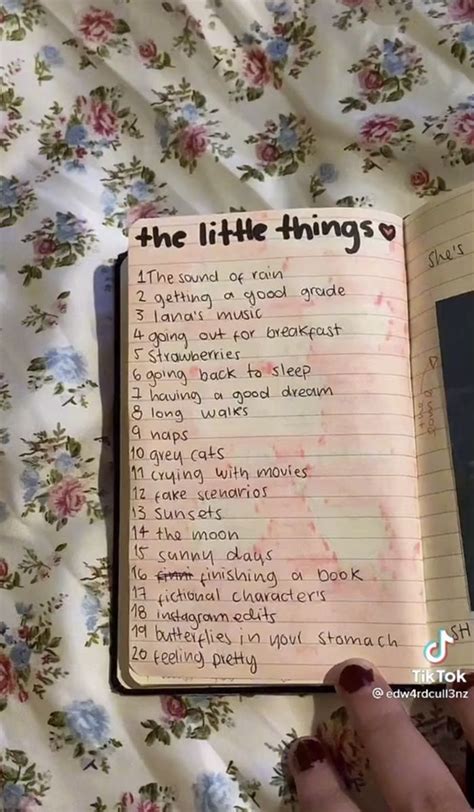 the little things
1 The sound of rain
2 getting a good grade
3 lana's music
4 going out for breakfast
5 strawberries
6 going back to sleep
7 having a good dream
8 long walks
9 naps
10 grey cats
11 crying with movies
12 fake scenarios
13 sunsets
14 the moon
15 sunny days
16 finishing a book
17 fictional character's
18 instagram edits
19 butterflies in your stomach
20 feeling pretty
she's
the
same
SH
TikTok
@edw4rdcull3nz